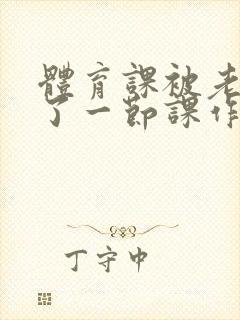 體育課被老
了一節課作
丁守中